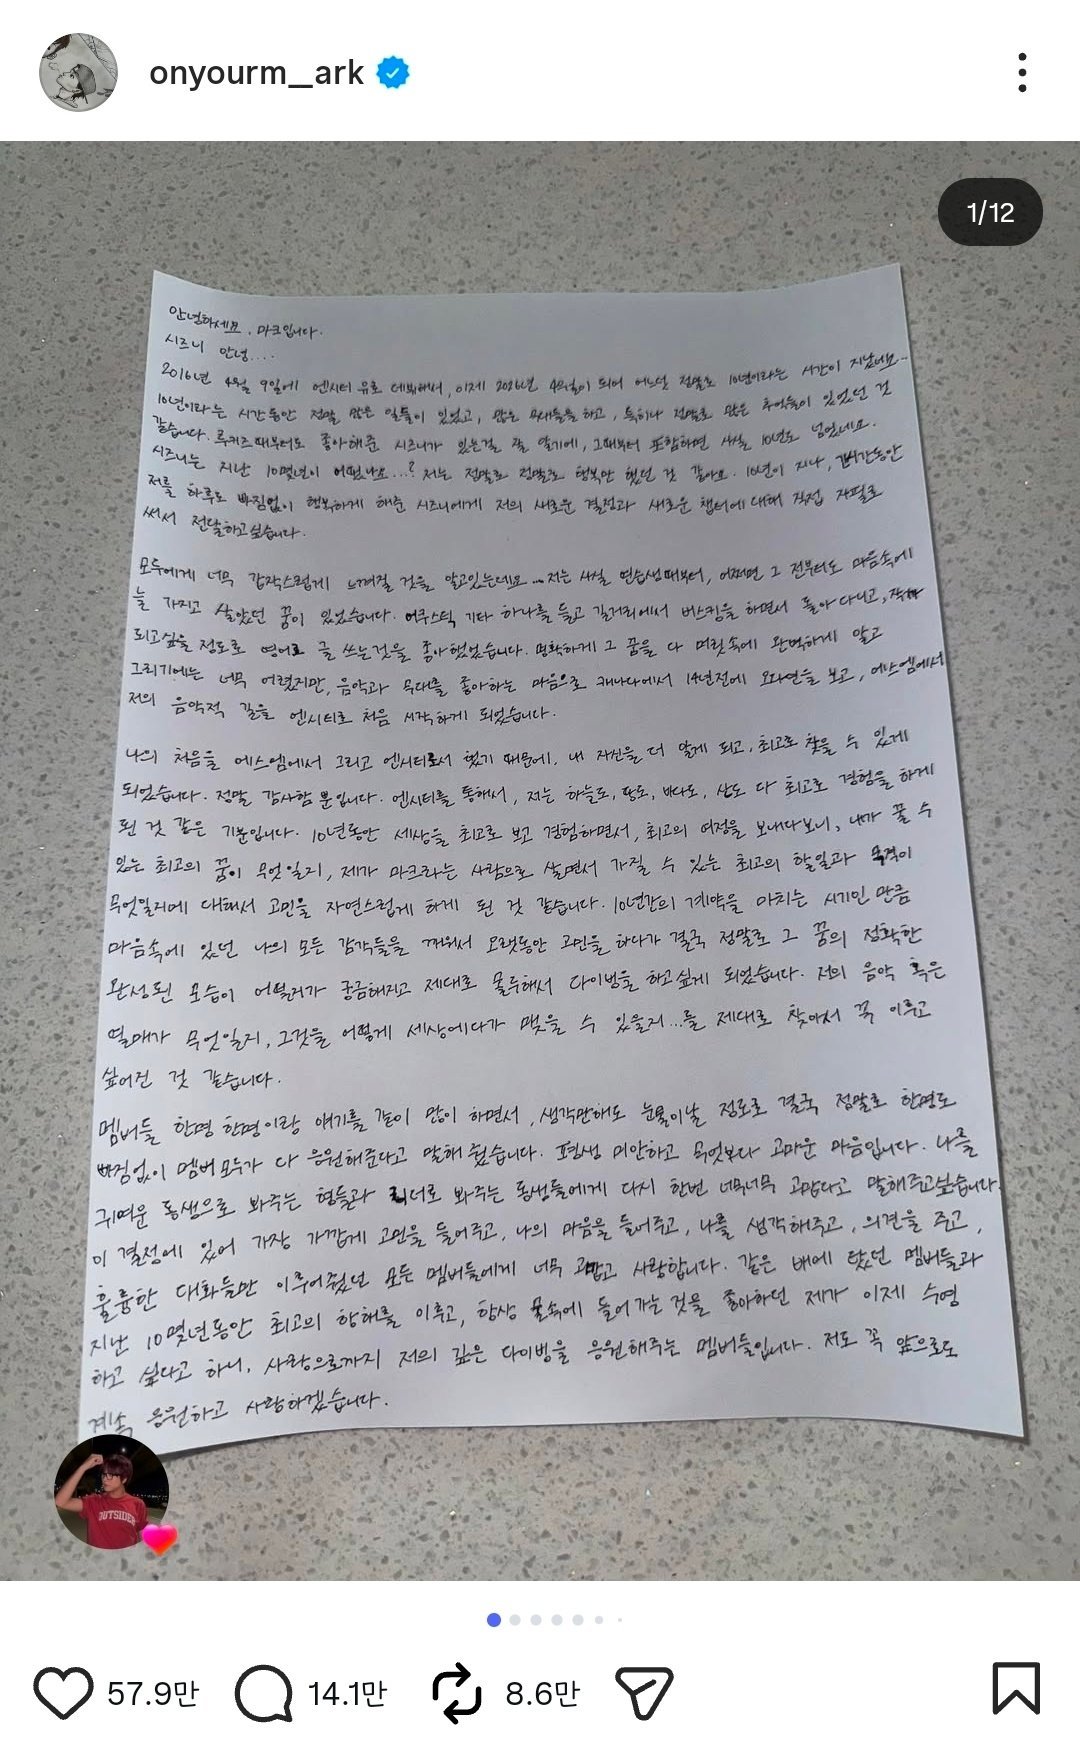 onyourm__ark
1/12
안녕하세요, 마크입니다.
시즈니 안녕....
2016년 4월 9일에 엔시티 유로 데뷔해서, 이제 2026년 4월이 되어 어느덧 정말로 10년이라는 시간이 지났네요..
10년이라는 시간동안 정말 많은 일들이 있었고, 많은 무대들을 하고, 특히나 정말로 많은 추억들이 있었던 것
같습니다. 루키즈때부터도 좋아해준 시즈니가 있는걸 잘 알기에, 그때부터 포함하면 사실 10년도 넘었네요.
시즈니는 지난 10몇년이 어땠나요...? 저는 정말로 정말로 행복만 했던 것 같아요. 10년이 지나, 긴시간동안
저를 하루도 빠짐없이 행복하게 해준 시즈니에게 저의 새로운 결정과 새로운 챕터에 대해 직접 자필로
써서 전달하고싶습니다.
모두에게 너무 갑작스럽게 느껴질 것을 알고있는데요... 저는 사실 연습생때부터, 어쩌면 그 전부터도 마음속에
늘 가지고 살았던 꿈이 있었습니다. 어쿠스틱 기타 하나를 들고 길거리에서 버스킹을 하면서 돌아다니고, 작가
되고싶을 정도로 영어로 글 쓰는것을 좋아했었습니다. 명확하게 그 꿈을 다 머릿속에 완벽하게 알고
그리기에는 너무 어렸지만, 음악과 무대를 좋아하는 마음으로 캐나다에서 14년전에 오디션을 보고, 에스엠에서
저의 음악적 길을 엔시티로 처음 시작하게 되었습니다.
나의 처음을 에스엠에서 그리고 엔시티로서 했기 때문에, 내 자신을 더 알게 되고, 최고로 찾을 수 있게
되었습니다. 정말 감사함 뿐입니다. 엔시티를 통해서, 저는 하늘도, 땅도, 바다도, 산도 다 최고로 경험을 하게
된 것 같은 기분입니다. 10년동안 세상을 최고로 보고 경험하면서, 최고의 여정을 보내다보니, 내가 꿀 수
있는 최고의 꿈이 무엇일지, 제가 마크라는 사람으로 살면서 가질 수 있는 최고의 할일과 목적이
무엇일지에 대해서 고민을 자연스럽게 하게 된 것 같습니다. 10년간의 계약을 마치는 시기인 만큼
마음속에 있던 나의 모든 감각들을 깨워서 오랫동안 고민을 하다가 결국 정말로 그 꿈의 정확한
완성된 모습이 어떨지가 궁금해지고 제대로 몰두해서 다이빙을 하고싶게 되었습니다. 저의 음악 혹은
열매가 무엇일지, 그것을 어떻게 세상에다가 맺을 수 있을지...를 제대로 찾아서 꼭 이루고
싶어진 것 같습니다.
멤버들 한명 한명이랑 얘기를 같이 많이 하면서, 생각만해도 눈물이날 정도로 결국 정말로 한명도
빠짐없이 멤버 모두가 다 응원해준다고 말해 줬습니다. 평생 미안하고 무엇보다 고마운 마음입니다. 나를
귀여운 동생으로 봐주는 형들과 리더로 봐주는 동생들에게 다시 한번 너무너무 고맙다고 말해주고싶습니다.
이 결정에 있어 가장 가깝게 고민을 들어주고, 나의 마음을 들어주고, 나를 생각해주고, 의견을 주고,
훌륭한 대화들만 이루어줬던 모든 멤버들에게 너무 고맙고 사랑합니다. 같은 배에 탔던 멤버들과
지난 10몇년동안 최고의 항해를 이루고, 항상 물속에 들어가는것을 좋아하던 제가 이제 수영
하고 싶다고 하니, 사랑으로까지 저의 깊은 다이빙을 응원해주는 멤버들입니다. 저도 꼭 앞으로도
계속 응원하고 사랑하겠습니다.
OUTSIDER
57.9만 14.1만 8.6만